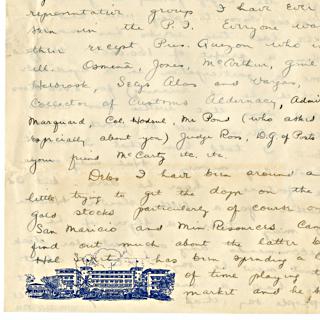 representative group I have ever
seen in the P.I. Everyone was
there except Pres. Quezon who is
ill. Osmeña, Jones, McArthur, Gen'l
Holbrook, Secys Alas and Vargas,
Collector of Customs Aldernacy, Admiral
Marquard, Col. Hodsul, Mr Pond (who asked
especially about you) Judge Ross, D.G. of Posts
your friend McCarty etc. etc.
Debs I have been around a
little trying to get the dope on the
gold stocks particularly of course on
San Maricio and Min Resources. Can
find out much about the latter b
Hal has been spending a l
of time playing t
market and he s